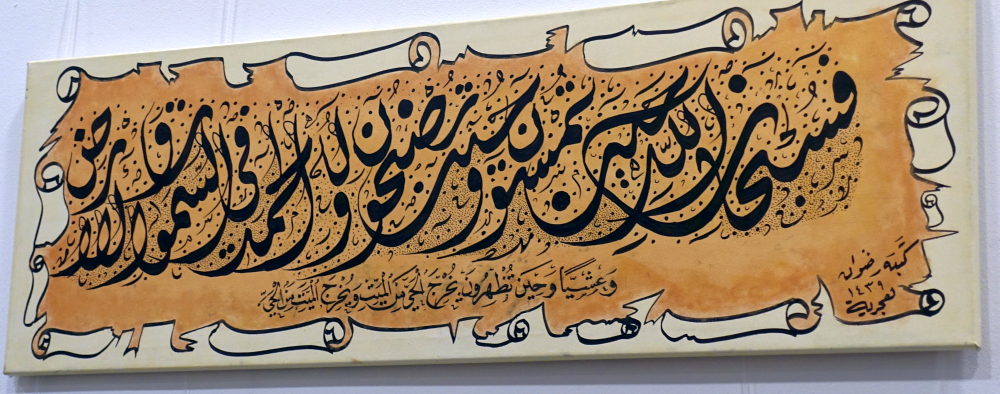 فسبحان الله حين تمسون وحين تصبحون وله الحمد في السموات والأرض
وعشيًّا وحين تُظهرون يُخرج الحيَّ مِنَ الميّت ويُخرج الميّت مِنَ الحيِّ
كتبه رضوان
١٤٣٩
لهجرية